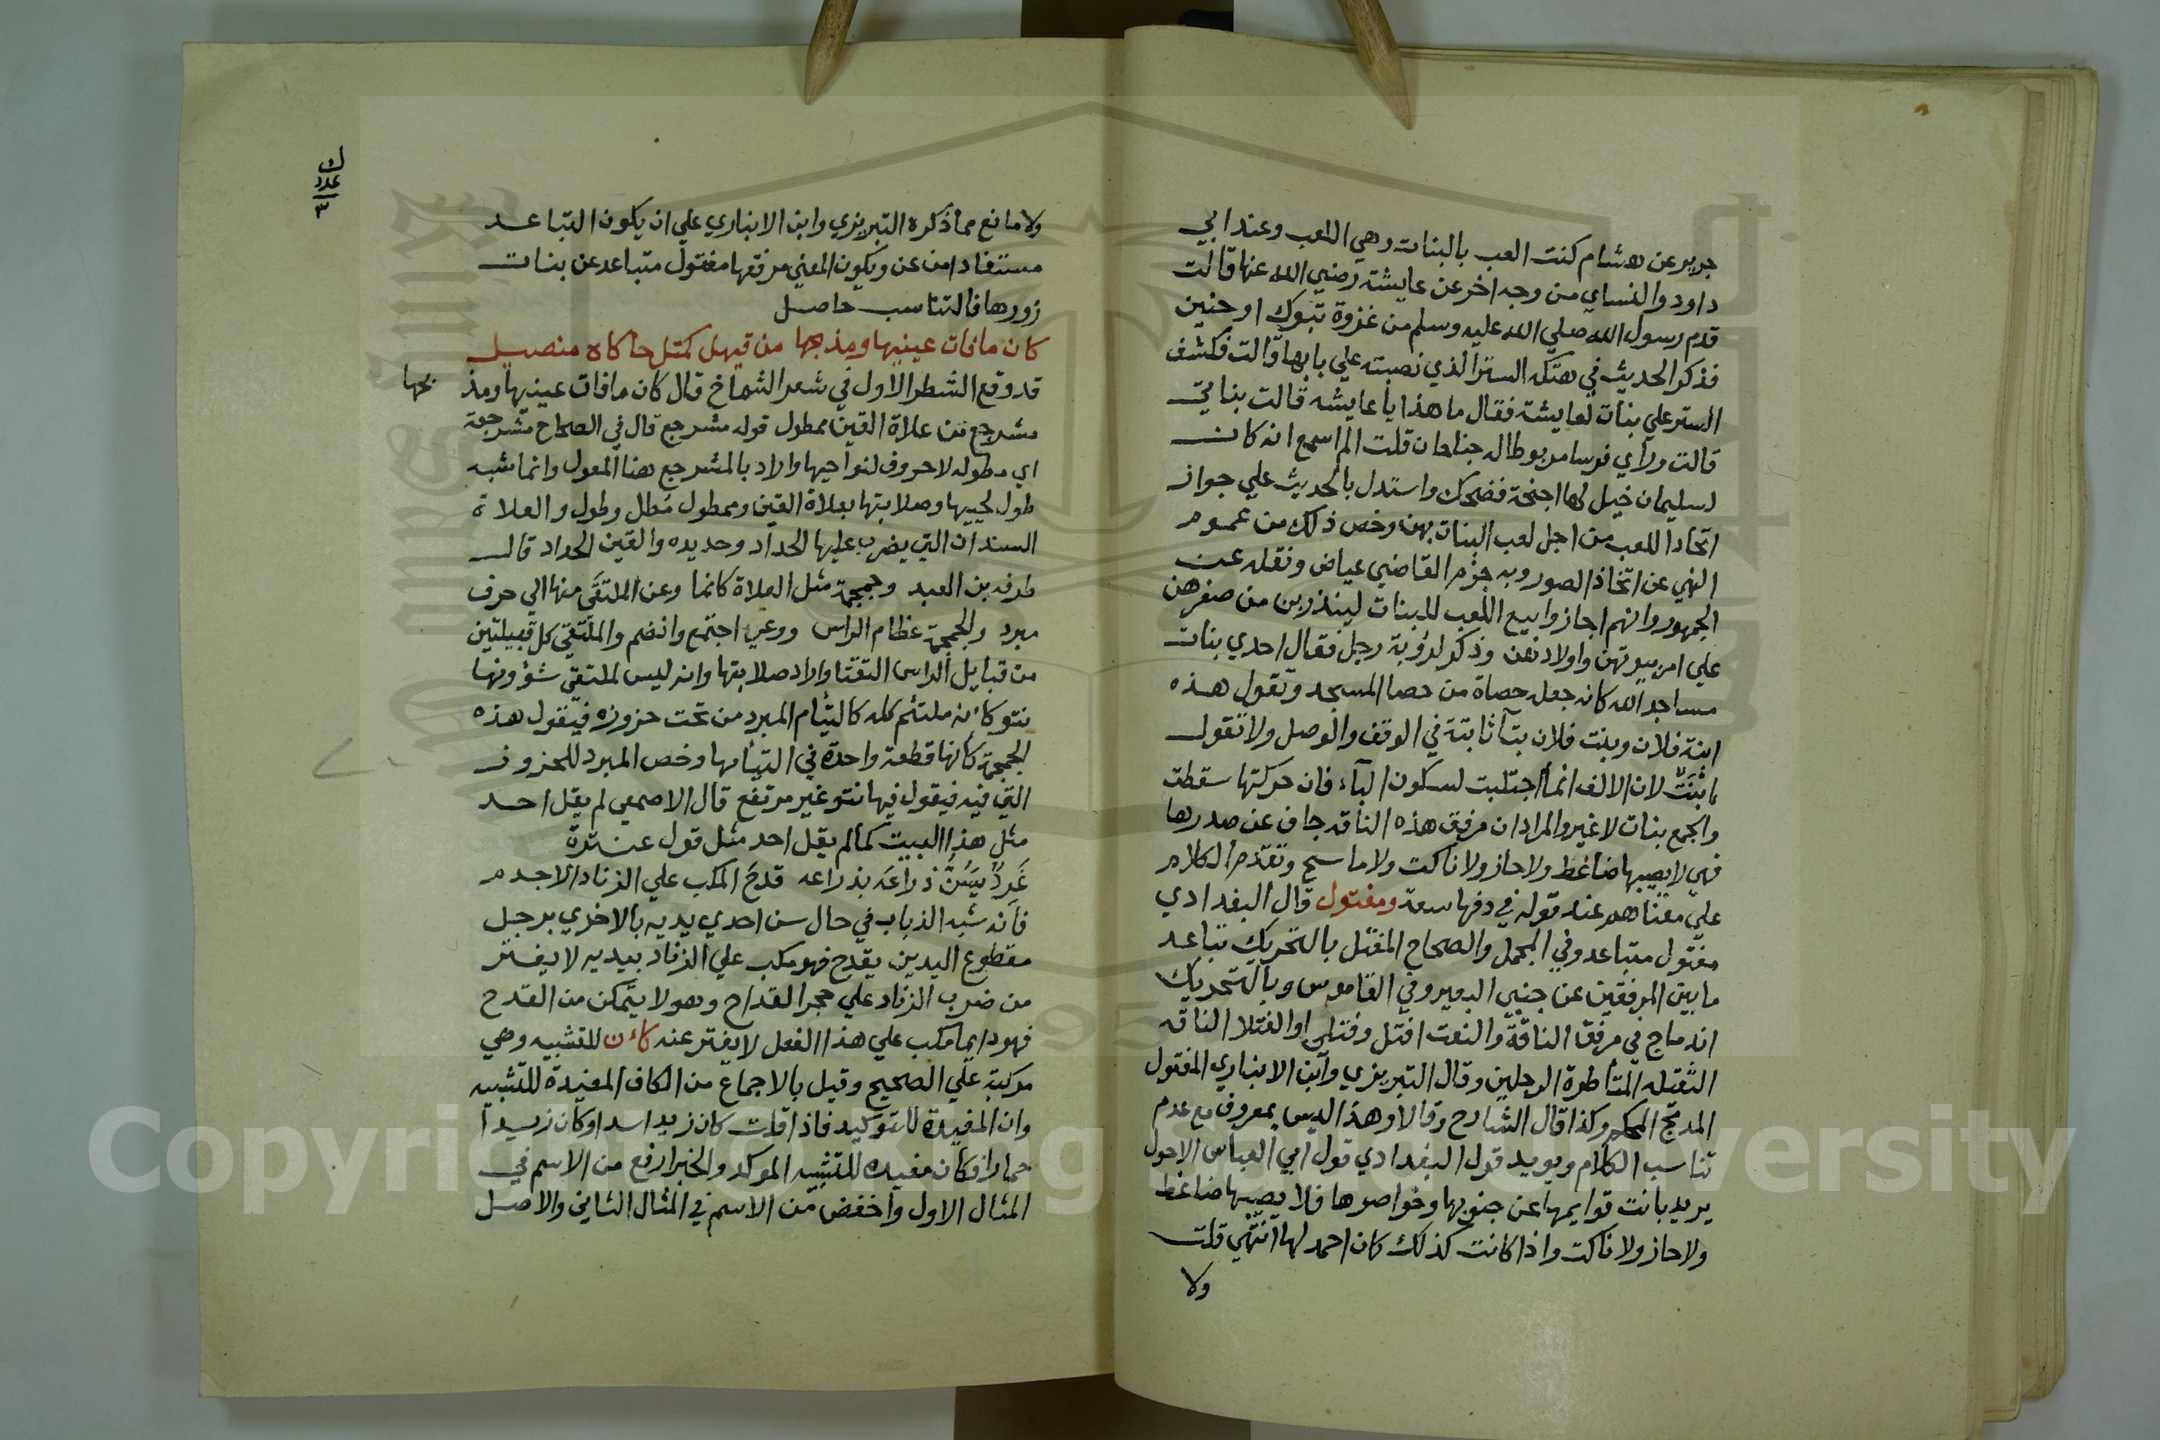 جرير عن هشام كنت العب بالبنات وهي اللعب وعند ابي
داود والنساي من وجه اخر عن عايشة رضي الله عنها قالت
قدم رسول الله صلي الله عليه وسلم من غزوة تبوك او حنين
فذكر الحديث في هتكه الستر الذي نصبته علي بابها قالت فكشف
الستر علي بنات لعايشة فقال ما هذا يا عايشه قالت بناتي
قالت وراي فرسا مربوطا له جناحان قلت الم اسمع انه كان
لسليمان خيل لها اجنحة فضحك واستدل بالحديث علي جواز
اتخاذ اللعب من اجل لعب البنات بهن وخص ذلك من عموم
النهي عن اتخاذ الصور وبه جزم القاضي عياض ونقله عن
الجمهور وانهم اجازوا بيع اللعب للبنات ليتدربن من صغرهن
علي امر بيوتهن واولادهن وذكر لرؤبة رجل فقال احدي بنات
مساجد الله كانه جعله حصاة من حصا المسجد وتقول هذه
ابنة فلان وبنت فلان بتآ ثابتة في الوقف والوصل ولا تقول
ابنت لان الالف انما اجتلبت لسكون البآء فان حركتها سقطت
والجمع بنات لا غير والمراد ان مرفق هذه الناقه جاف عن صدرها
فهي لا يصيبها ضاغط ولا حاز ولا ناكت ولا ماسح وتقدم الكلام
علي معناهم عند قوله في دفها سعة ومفتول قال البغدادي
مفتول متباعد وفي المجمل والصحاح الفتل بالتحريك تباعد
ما بين المرفقين عن جنبي البعير وفي القاموس وبالتحريك
اندماج في مرفق الناقة والنعت افتل وفتلي او الفتلا الناقه
الثقيله المتأطرة الرجلين وقال التبريزي وابن الانباري المفتول
المدمج المحكم وكذا قال الشارح وقالا وهذا ليس بمعروف مع عدم
تناسب الكلام ويويد قول البغدادي قول ابي العباس الاحول
يريد بانت قوايمها عن جنوبها وخواصرها فلا يصيبها ضاغط
ولا حاز ولا ناكت واذا كانت كذلك كان احمد لها انتهي قلت
ولا
ك
عدد
٣
ولا مانع مما ذكره التبريزي وابن الانباري علي ان يكون التباعد
مستفادا من عن ويكون المعني مرفقها مفتول متباعد عن بنات
زورها فالتناسب حاصل
كان مافات عينيها ومذبحها من قبيل كمثل حاكاه منصيل
قد وقع الشطر الاول في شعر الشماخ قال كان مافات عينيها ومذ
بحها
مشرجع من علاة القين ممطول قوله مشرجع قال في الصحاح مشرجعة
اي مطوله لا حروف لنواحيها واراد بالمشرجع هنا المعول وانما شبه
طول لحييها وصلابتها بعلاة القين وممطول مُطل وطول والعلاة
السندان التي يضرب عليها الحداد وحديده والقين الحداد قال
طرفه بن العبد وجمجمة مثل العلاة كانما وعن الملتقَي منها الي حرف
مبرد والجمجمة عظام الراس ووعي اجتمع وانضم والملتقي كل قبيلتين
من قبايل الراس التقتا واراد صلابتها وانه ليس لملتقي شؤونها
نتو كانه ملتئم كله كالتيام المبرد من تحت حزوزه فيقول هذه
الجمجمة كانها قطعة واحدة في التيامها وخص المبرد للحزوز
التي فيه فيقول فيها نتو غير مرتفع قال الاصمعي لم يقل احد
مثل هذا البيت كما لم يقل احد مثل قول عنترة
غَرِدٌ يَسُنُّ ذراعَه بذراعه قدحَ المكب علي الزناد الاجدم
فانه شبه الذباب في حال سن احدي يديه بالاخري برجل
مقطوع اليدين يقدح فهو مكب علي الزناد بيديه لا يفتر
من ضرب الزناد علي حجر القداح وهو لا يتمكن من القدح
فهو دايما مكب علي هذا الفعل لا يفتر عنه كان للتشبيه وهي
مركبة علي الصحيح وقيل بالاجماع من الكاف المفيدة للتشبيه
وان المفيدة للتوكيد فاذا قلت كان زيد اسد او كان زيدا
حمار فكان مفيده للتشبيه الموكد والخبر ارفع من الاسم في
المثال الاول واخفض من الاسم في المثال الثاني والاصل